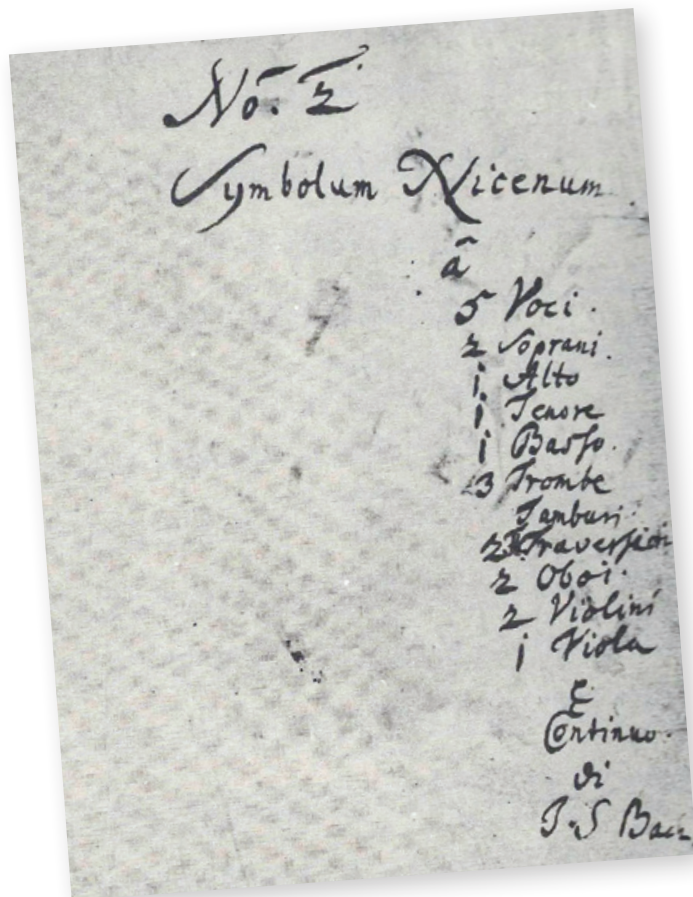 No. 2
Symbolum Nicenum
â
5 Voci.
2 Soprani.
1 Alto
1 Tenore
1 Basso.
3 Trombe
Tamburi.
2 Traversieri
2 Oboi.
2 Violini
1 Viola
e
Continuo.
di
J. S Bach